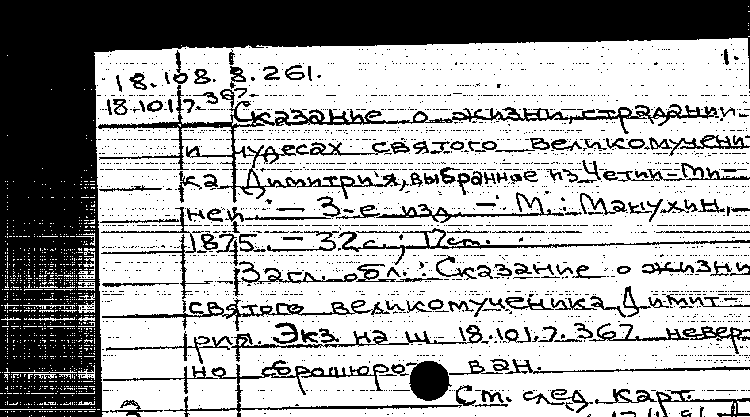 1.
18.108.8.261.
18.101.7.367.
Сказание о жизни, страдании
и чудесах святого великомучени
ка Димитрия, выбранное из Четии-Ми-
неи. — 3-е изд. — М.: Манухин,
1875. — 32с.; 17см.
Загл. обл.: Сказание о жизни
святого великомученика Димит-
рия. Экз. на ш. 18.101.7.367. невер-
но сброшюрован.
См. след. карт.